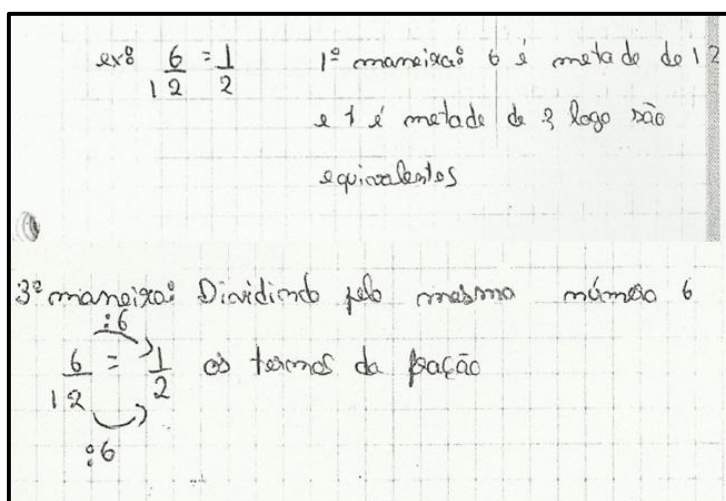 ex: 6/12 = 1/2 1ª maneira: 6 é metade de 12
e 1 é metade de 2 logo são
equivalentes
3ª maneira: Dividindo pelo mesmo número 6
:6
6/12 = 1/2 os termos da fração
:6